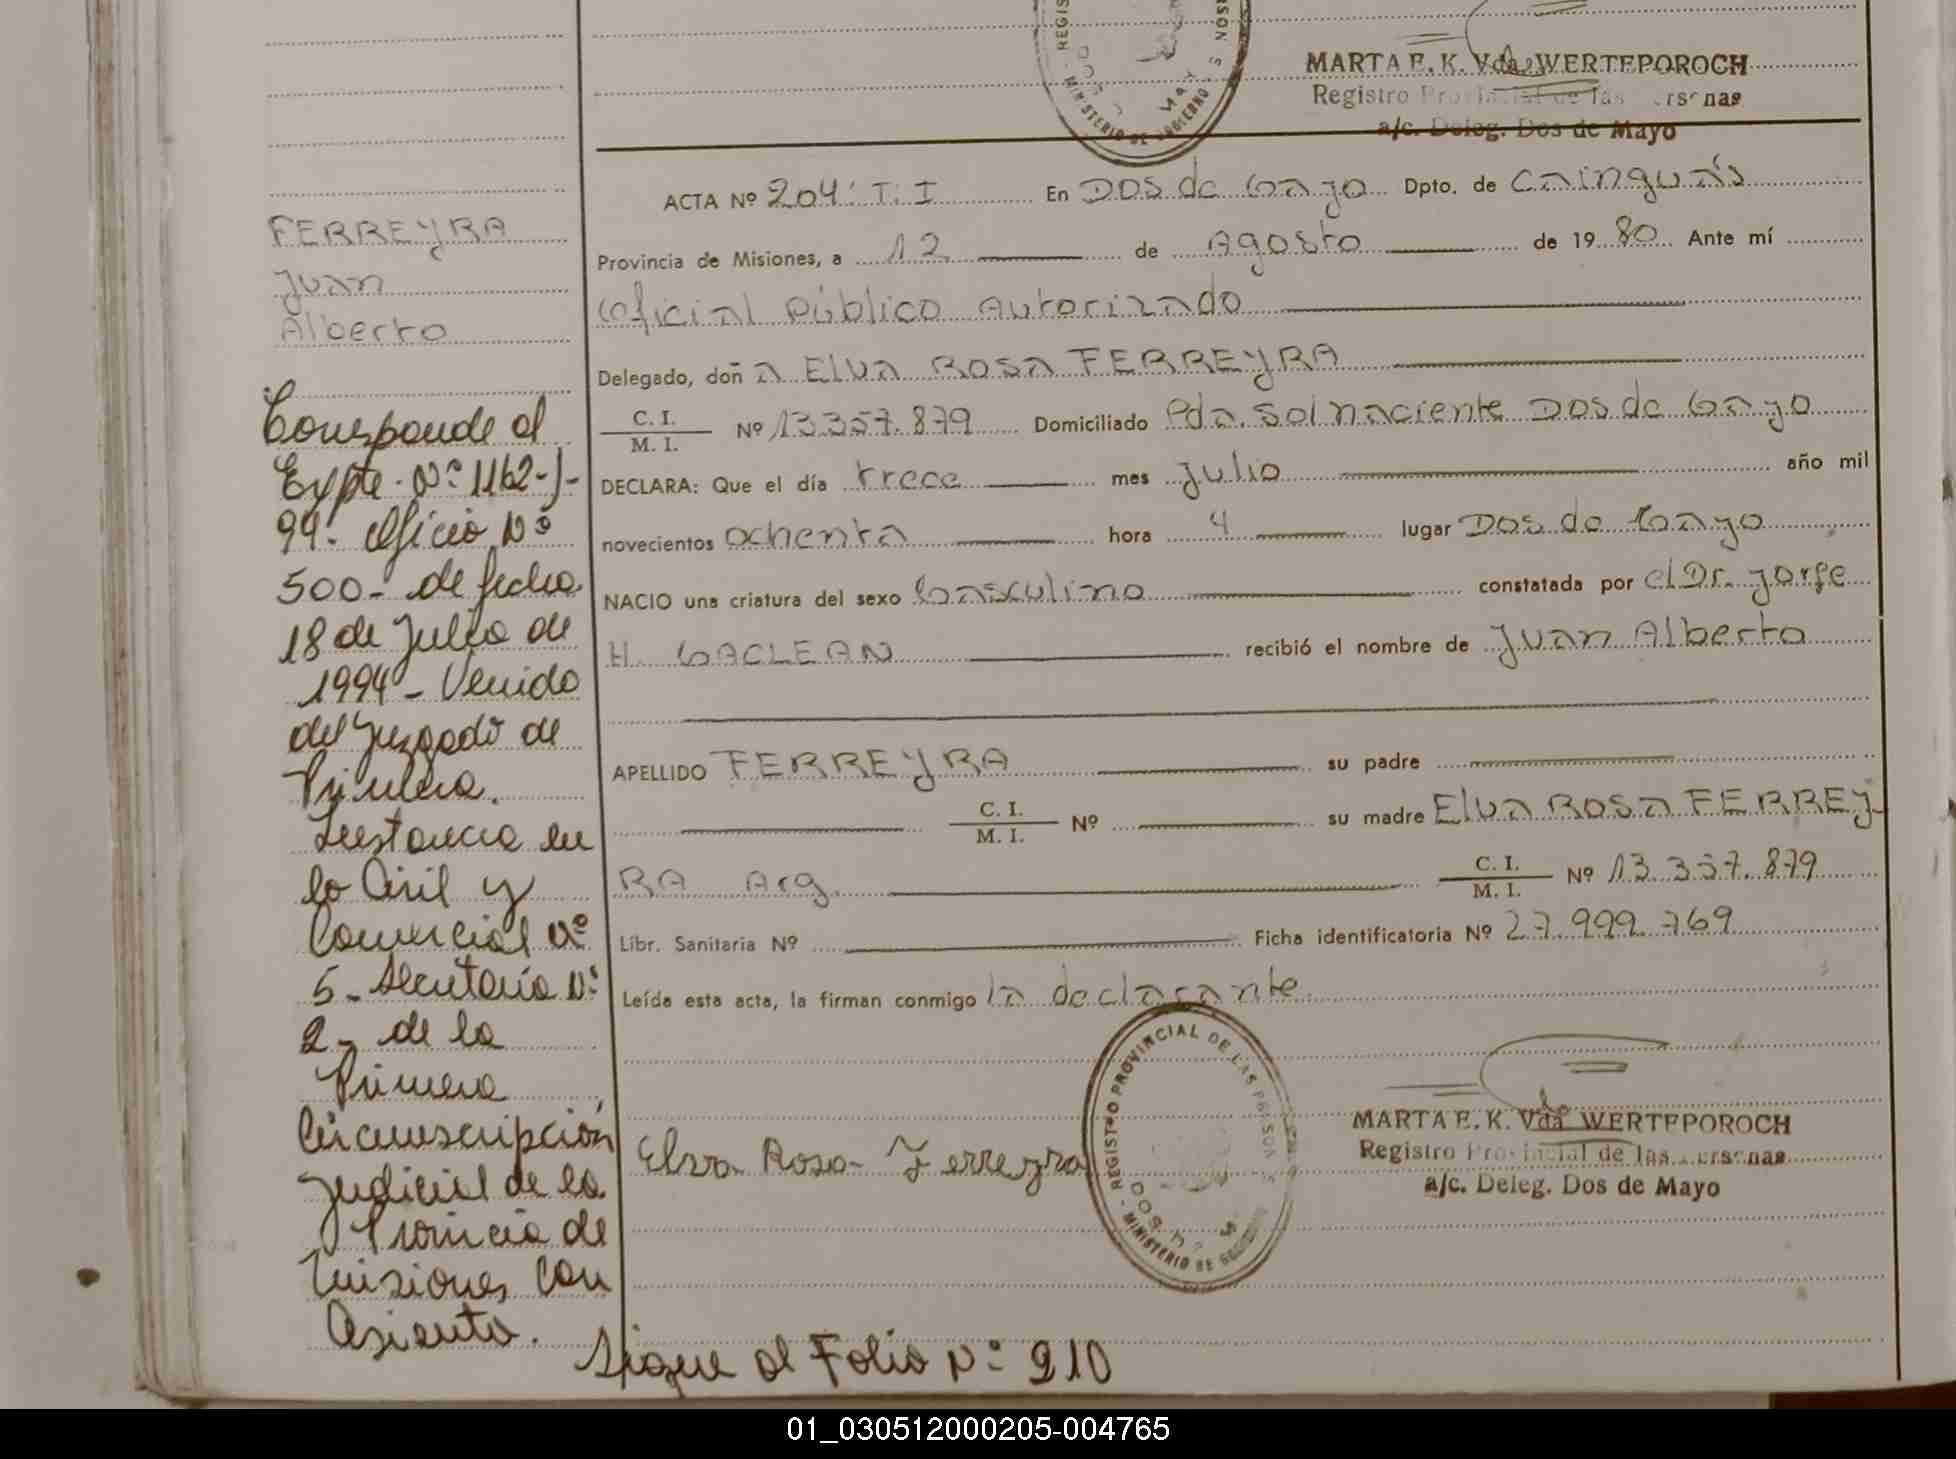 MARTA E. K. Vda. WERTEPOROCH
Registro Provincial de las Personas
a/c. Deleg. Dos de Mayo
FERREYRA
Juan
Alberto
Corresponde al
Expte. Nº 1162-J-
94. Oficio Nº
500- de fecha
18 de Julio de
1994- Venido
del Juzgado de
Primera
Instancia en
lo Civil y
Comercial Nº
5- Secretaría Nº
2- de la
Primera
Circunscripción
Judicial de la
Provincia de
Misiones con
Asiento.
ACTA Nº 204: T. I En Dos de Mayo Dpto. de Cainguás
Provincia de Misiones, a 12 de Agosto de 1980 Ante mí
Oficial Público Autorizado
Delegado, doña Elva Rosa FERREYRA
C. I. / M. I. Nº 13.357.879 Domiciliado Pda. Sol naciente Dos de Mayo
DECLARA: Que el día trece mes Julio año mil
novecientos ochenta hora 4 lugar Dos de Mayo
NACIO una criatura del sexo Masculino constatada por el Dr. Jorge
H. MACLEAN recibió el nombre de Juan Alberto
APELLIDO FERREYRA su padre
C. I. / M. I. Nº su madre Elva Rosa FERREY-
RA Arg. C. I. / M. I. Nº 13.357.879
Libr. Sanitaria Nº Ficha identificatoria Nº 27.999.769
Leída esta acta, la firman conmigo la declarante
Elva Rosa Ferreyra
REGISTRO PROVINCIAL DE LAS PERSONAS
MINISTERIO DE GOBIERNO
MARTA E. K. Vda. WERTEPOROCH
Registro Provincial de las Personas
a/c. Deleg. Dos de Mayo
Sigue al Folio Nº 210
01_030512000205-004765